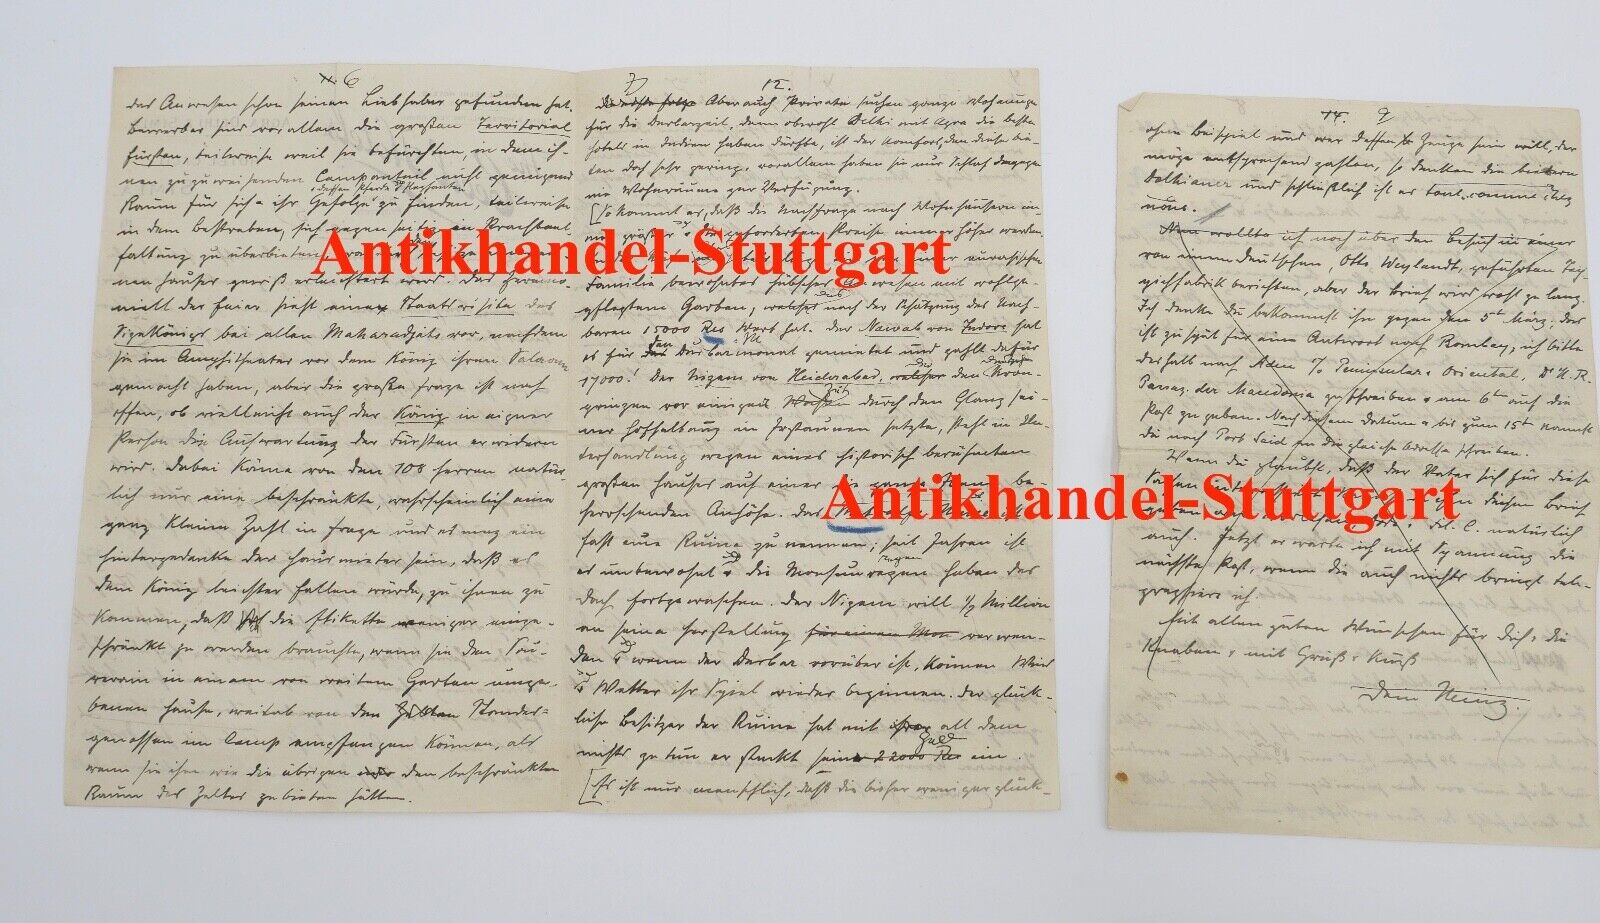 11. 6
das Anwesen schon seinen Liebhaber gefunden hat.
Bewerber sind vor allem die großen Territorial
fürsten, teilweise weil sie befürchten, in dem ih-
nen zuzuweisenden Campanteil nicht genügend
, dessen Pferde & Elephanten
Raum für sich & ihr Gefolge zu finden, teilweise
in dem Bestreben, sich gegenseitig an Prachtent-
faltung zu überbieten,
nen Hauses gewiß erleichtert wird. Das Ceremo-
niell der Feier sieht einen Staatsvisite des
Vizekönigs bei allen Maharadjahs vor, nachdem
sie im Amphitheater vor dem König ihren Salaam
gemacht haben, aber die große Frage ist noch
offen, ob vielleicht auch der König in eigner
Person die Aufwartung der Fürsten erwidern
wird. Dabei käme von den 108 Herren natür-
lich nur eine beschränkte, wahrscheinlich eine
ganz kleine Zahl in Frage und es mag ein
Hintergedanke der Hausmieter sein, daß es
dem König leichter fallen würde, zu ihnen zu
kommen, daß die Etikette weniger einge-
schränkt zu werden brauchte, wenn sie den Sou-
verain in einem von weitem Garten umge-
benen Hause, weitab von den Zelten Standes-
genossen im Camp empfangen können, als
wenn sie ihm wie die übrigen den beschränkten
Raum des Zeltes zu bieten hätten.
7 12.
Aber auch Private suchen ganze Wohnunge
für die Darbarzeit, denn obwohl Delhi mit Agra die besten
Hotels in Indien haben dürfte, ist der Komfort, den diese bie-
ten doch sehr gering, vor allem haben sie nur Schlaf dagegen
nie Wohnräume zur Verfügung.
[So kommt es, daß die Nachfrage nach Wohnhäusern im-
mer größer & die geforderten Preise immer höher werden.
Familie bewohntes hübsches Anwesen mit wohlge-
pflegtem Garten, welches nach der Schätzung des Nach-
barn 15000 Rs Wert hat. Der Nawab von Indore hat
es für den Durbarmonat gemietet und zahlt dafür
17000! Der Nizam von Heiderabad, welcher den Kron-
prinzen vor einigen Wochen durch den Glanz sei-
ner Hofhaltung in Erstaunen setzte, steht in Un-
terhandlung wegen eines historisch berühmten
großen Hauses auf einer die ganze be-
herrschenden Anhöhe. Das
fast eine Ruine zu nennen; seit Jahren ist
es unbewohnt & die Monsunregen haben das
Dach fortgewaschen. Der Nizam will ½ Million
an seine Herstellung für einen Mon verwen-
den & wenn der Darbar vorüber ist, können Wind
& Wetter ihr Spiel wieder beginnen. Der glück-
liche Besitzer der Ruine hat mit all dem
Geld
nichts zu tun er steckt sein 22000 Rs ein.
[Es ist nur menschlich, daß die bisher weniger glück-
14. 9
ohne Beispiel und wer dessen Zeuge sein will, der
möge entsprechend zahlen, so denken die biedern
Delhianer und schließlich ist es tout comme chez
nous.
Nun wollte ich noch über den Besuch in einer
von einem Deutschen, Otto Weylandt, geführten Tep-
pichfabrik berichten, aber der Brief wird wohl zu lang.
Ich denke du bekommst ihn gegen den 5t März; das
ist zu spät für eine Antwort nach Bombay, ich bitte
deshalb nach Aden c/o Peninsular & Oriental, Dr H. R.
Passag. der Macedonia zu schreiben & am 6ten auf die
Post zu geben. Nach diesem Datum & bis zum 15t kannst
du nach Port Said an die gleiche Adresse schreiben.
Wenn du glaubst, daß der Vater sich für diese
Sachen
auch. Jetzt erwarte ich mit Spannung die
nächste Post, wenn die auch nichts bringt tele-
graphiere ich.
Mit allen guten Wünschen für dich & die
Knaben & mit Gruß & Kuß
Dein Heinz.
Antikhandel-Stuttgart
Antikhandel-Stuttgart